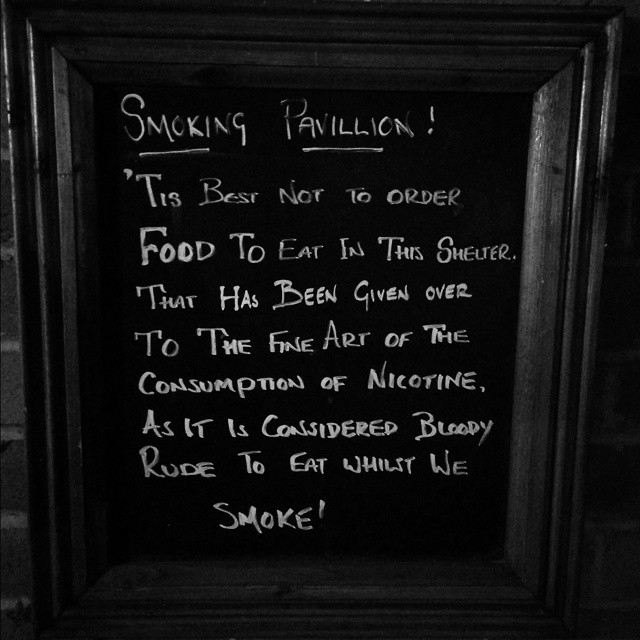 Smoking Pavillion!
'Tis Best Not to order
Food To Eat In This Shelter.
That Has Been Given over
To The Fine Art of The
Consumption of Nicotine,
As It Is Considered Bloody
Rude To Eat whilst We
Smoke!